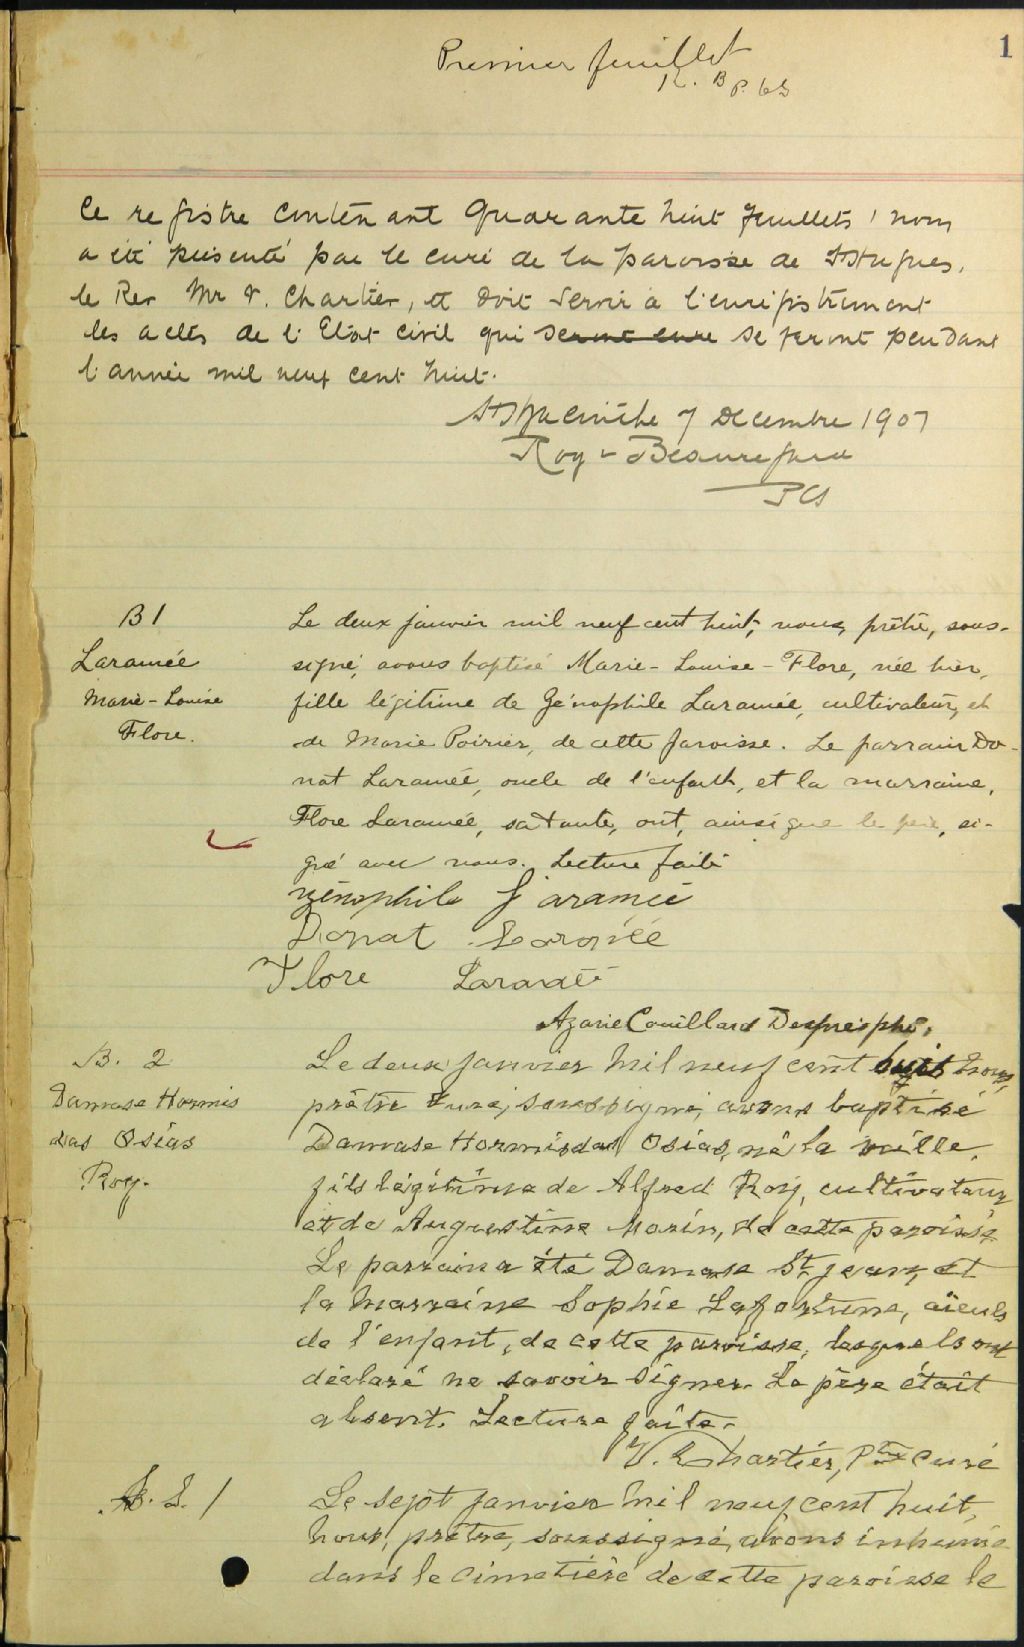 1
Premier feuillet
R. B P. CS
Ce registre contenant quarante huit feuillets, nous
a été présenté par le curé de la paroisse de St Hugues,
le Rev Mr V. Chartier, et doit servir à l'enregistrement
les actes de l'Etat civil qui seront enre se feront pendant
l'année mil neuf cent huit.
St Hyacinthe 7 Decembre 1907
Roy & Beauregard
PCS
B 1
Laramée
Marie-Louise
Flore.
Le deux janvier mil neuf cent huit, nous, prêtre, sous-
signé, avons baptisé Marie-Louise-Flore, née hier,
fille légitime de Zénophile Laramée, cultivateur, et
de Marie Poirier, de cette paroisse. Le parrain Do-
nat Laramée, oncle de l'enfant, et la marraine,
Flore Laramée, sa tante, ont, ainsi que le père, si-
gné avec nous. Lecture faite
Zénophile Laramée
Donat Laramée
Flore Laramée
Azarie Couillard Després ptre.
B. 2
Damase Hormis
das Osias
Roy.
Le deux janvier mil neuf cent huit nous,
prêtre curé, soussigné, avons baptisé
Damase Hormisdas Osias, né la veille,
fils légitime de Alfred Roy, cultivateur
et de Augustine Morin, de cette paroisse.
Le parrain a été Damase St. Jean, et
la marraine Sophie Lafortune, aïeuls
de l'enfant, de cette paroisse, lesquels ont
déclaré ne savoir signer. Le père était
absent. Lecture faite.
V. Chartier, Ptre curé
S. 1
Le sept janvier mil neuf cent huit,
nous, prêtre, soussigné, avons inhumé
dans le cimetière de cette paroisse le